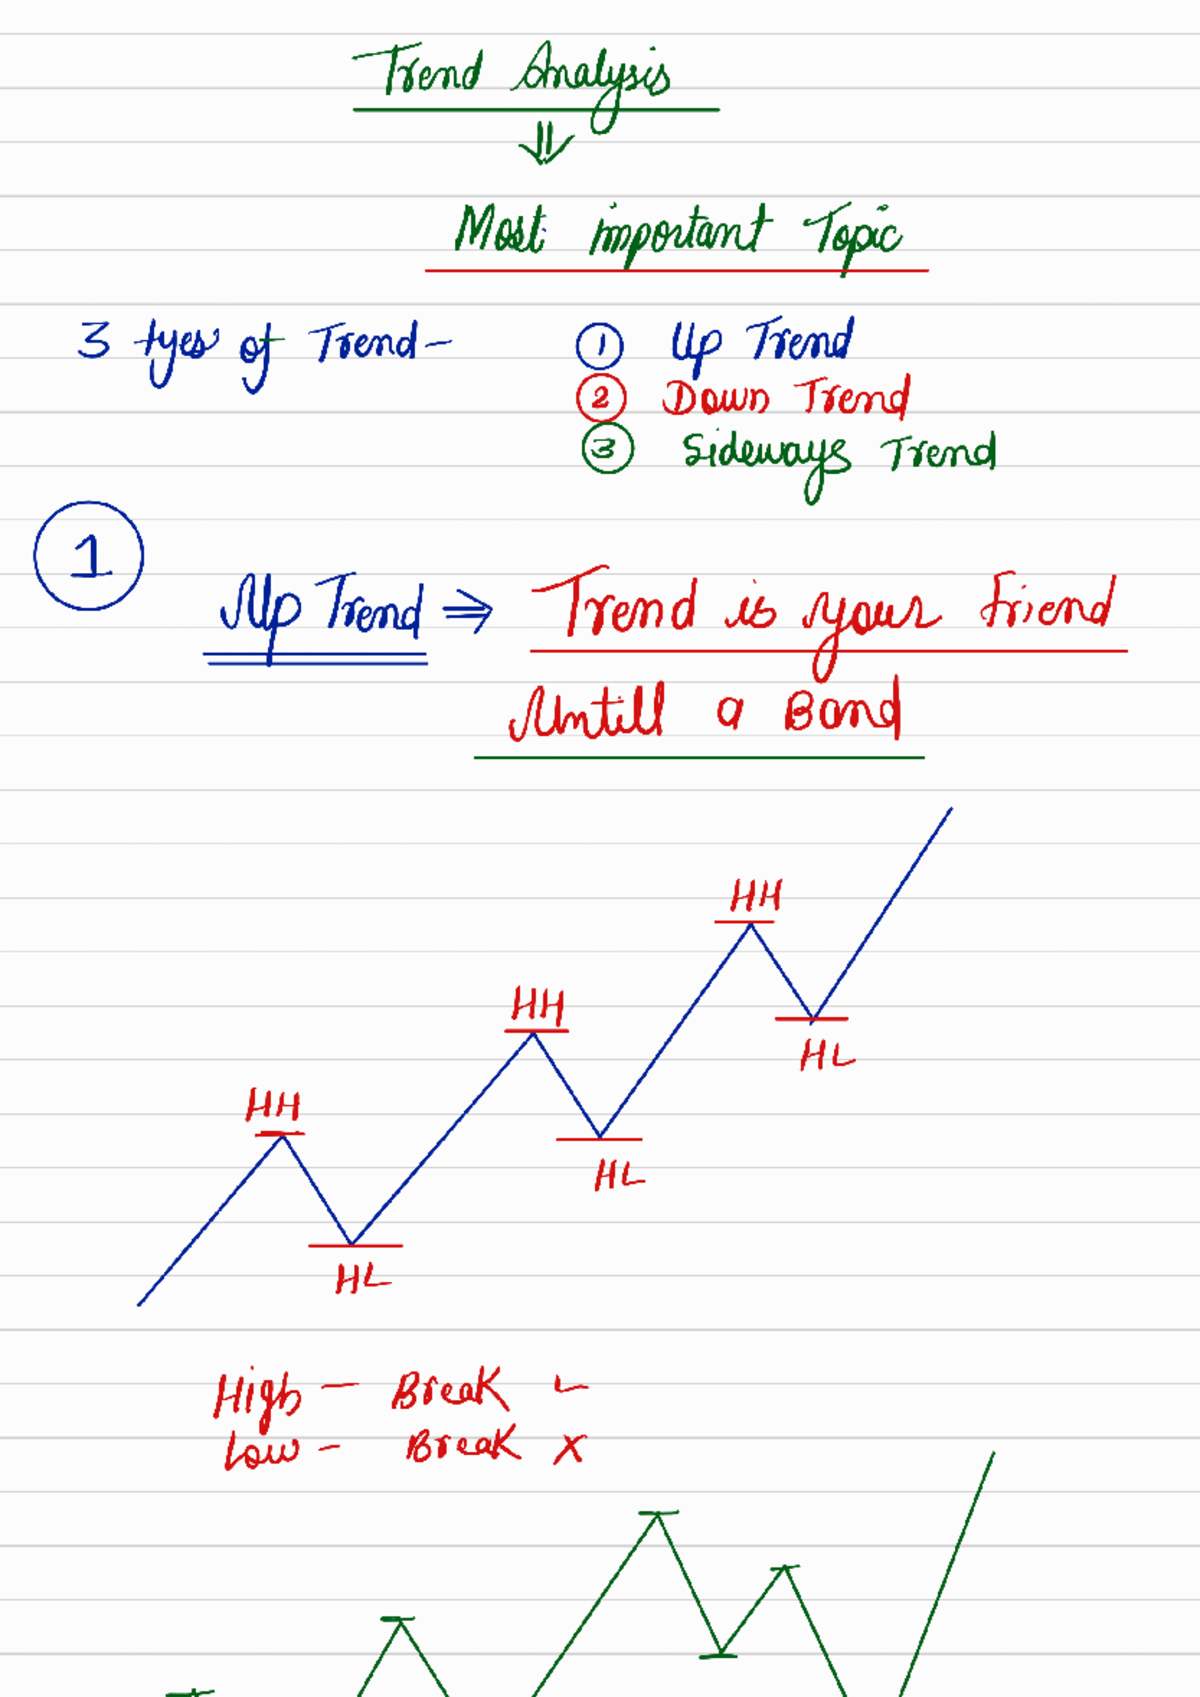 Trend Analysis
⇓
Most important Topic
3 tyes of Trend - ① Up Trend
② Down Trend
③ Sideways Trend
① Up Trend ⇒ Trend is your friend
Untill a Band
HH
HH
HL
HH
HL
HL
High - Break ✓
Low - Break X